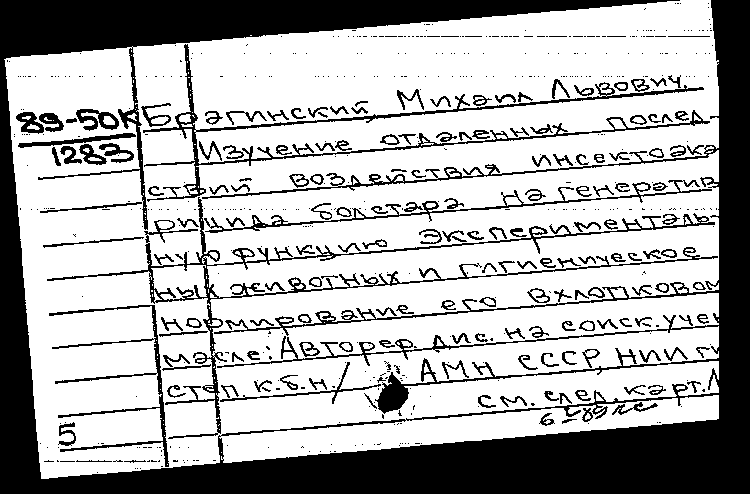 89-50К
1283
Брагинский, Михаил Львович.
Изучение отдаленных послед-
ствий воздействия инсектоака
рицида болстара на генератив
ную функцию эксперименталь-
ных животных и гигиеническое
нормирование его в хлопковом
масле: Автореф. дис. на соиск. учен
степ. к.б.н. / АМН СССР, НИИ ги
см. след. карт.
5